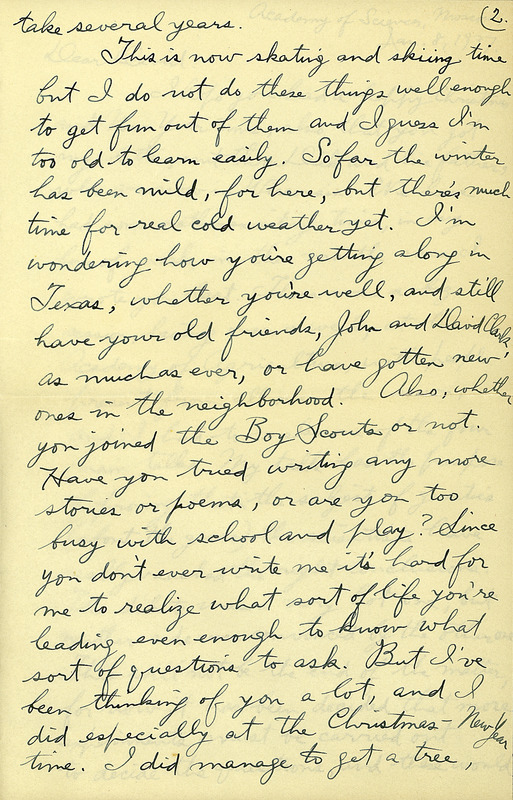 (2.
take several years.
This is now skating and skiing time
but I do not do these things well enough
to get fun out of them and I guess I'm
too old to learn easily. So far the winter
has been mild, for here, but there's much
time for real cold weather yet. I'm
wondering how you're getting along in
Texas, whether you're well, and still
have your old friends, John and David Clark,
as much as ever, or have gotten new
ones in the neighborhood. Also, whether
you joined the Boy Scouts or not.
Have you tried writing any more
stories or poems, or are you too
busy with school and play? Since
you don't ever write me it's hard for
me to realize what sort of life you're
leading even enough to know what
sort of questions to ask. But I've
been thinking of you a lot, and I
did especially at the Christmas - New Year
time. I did manage to get a tree,